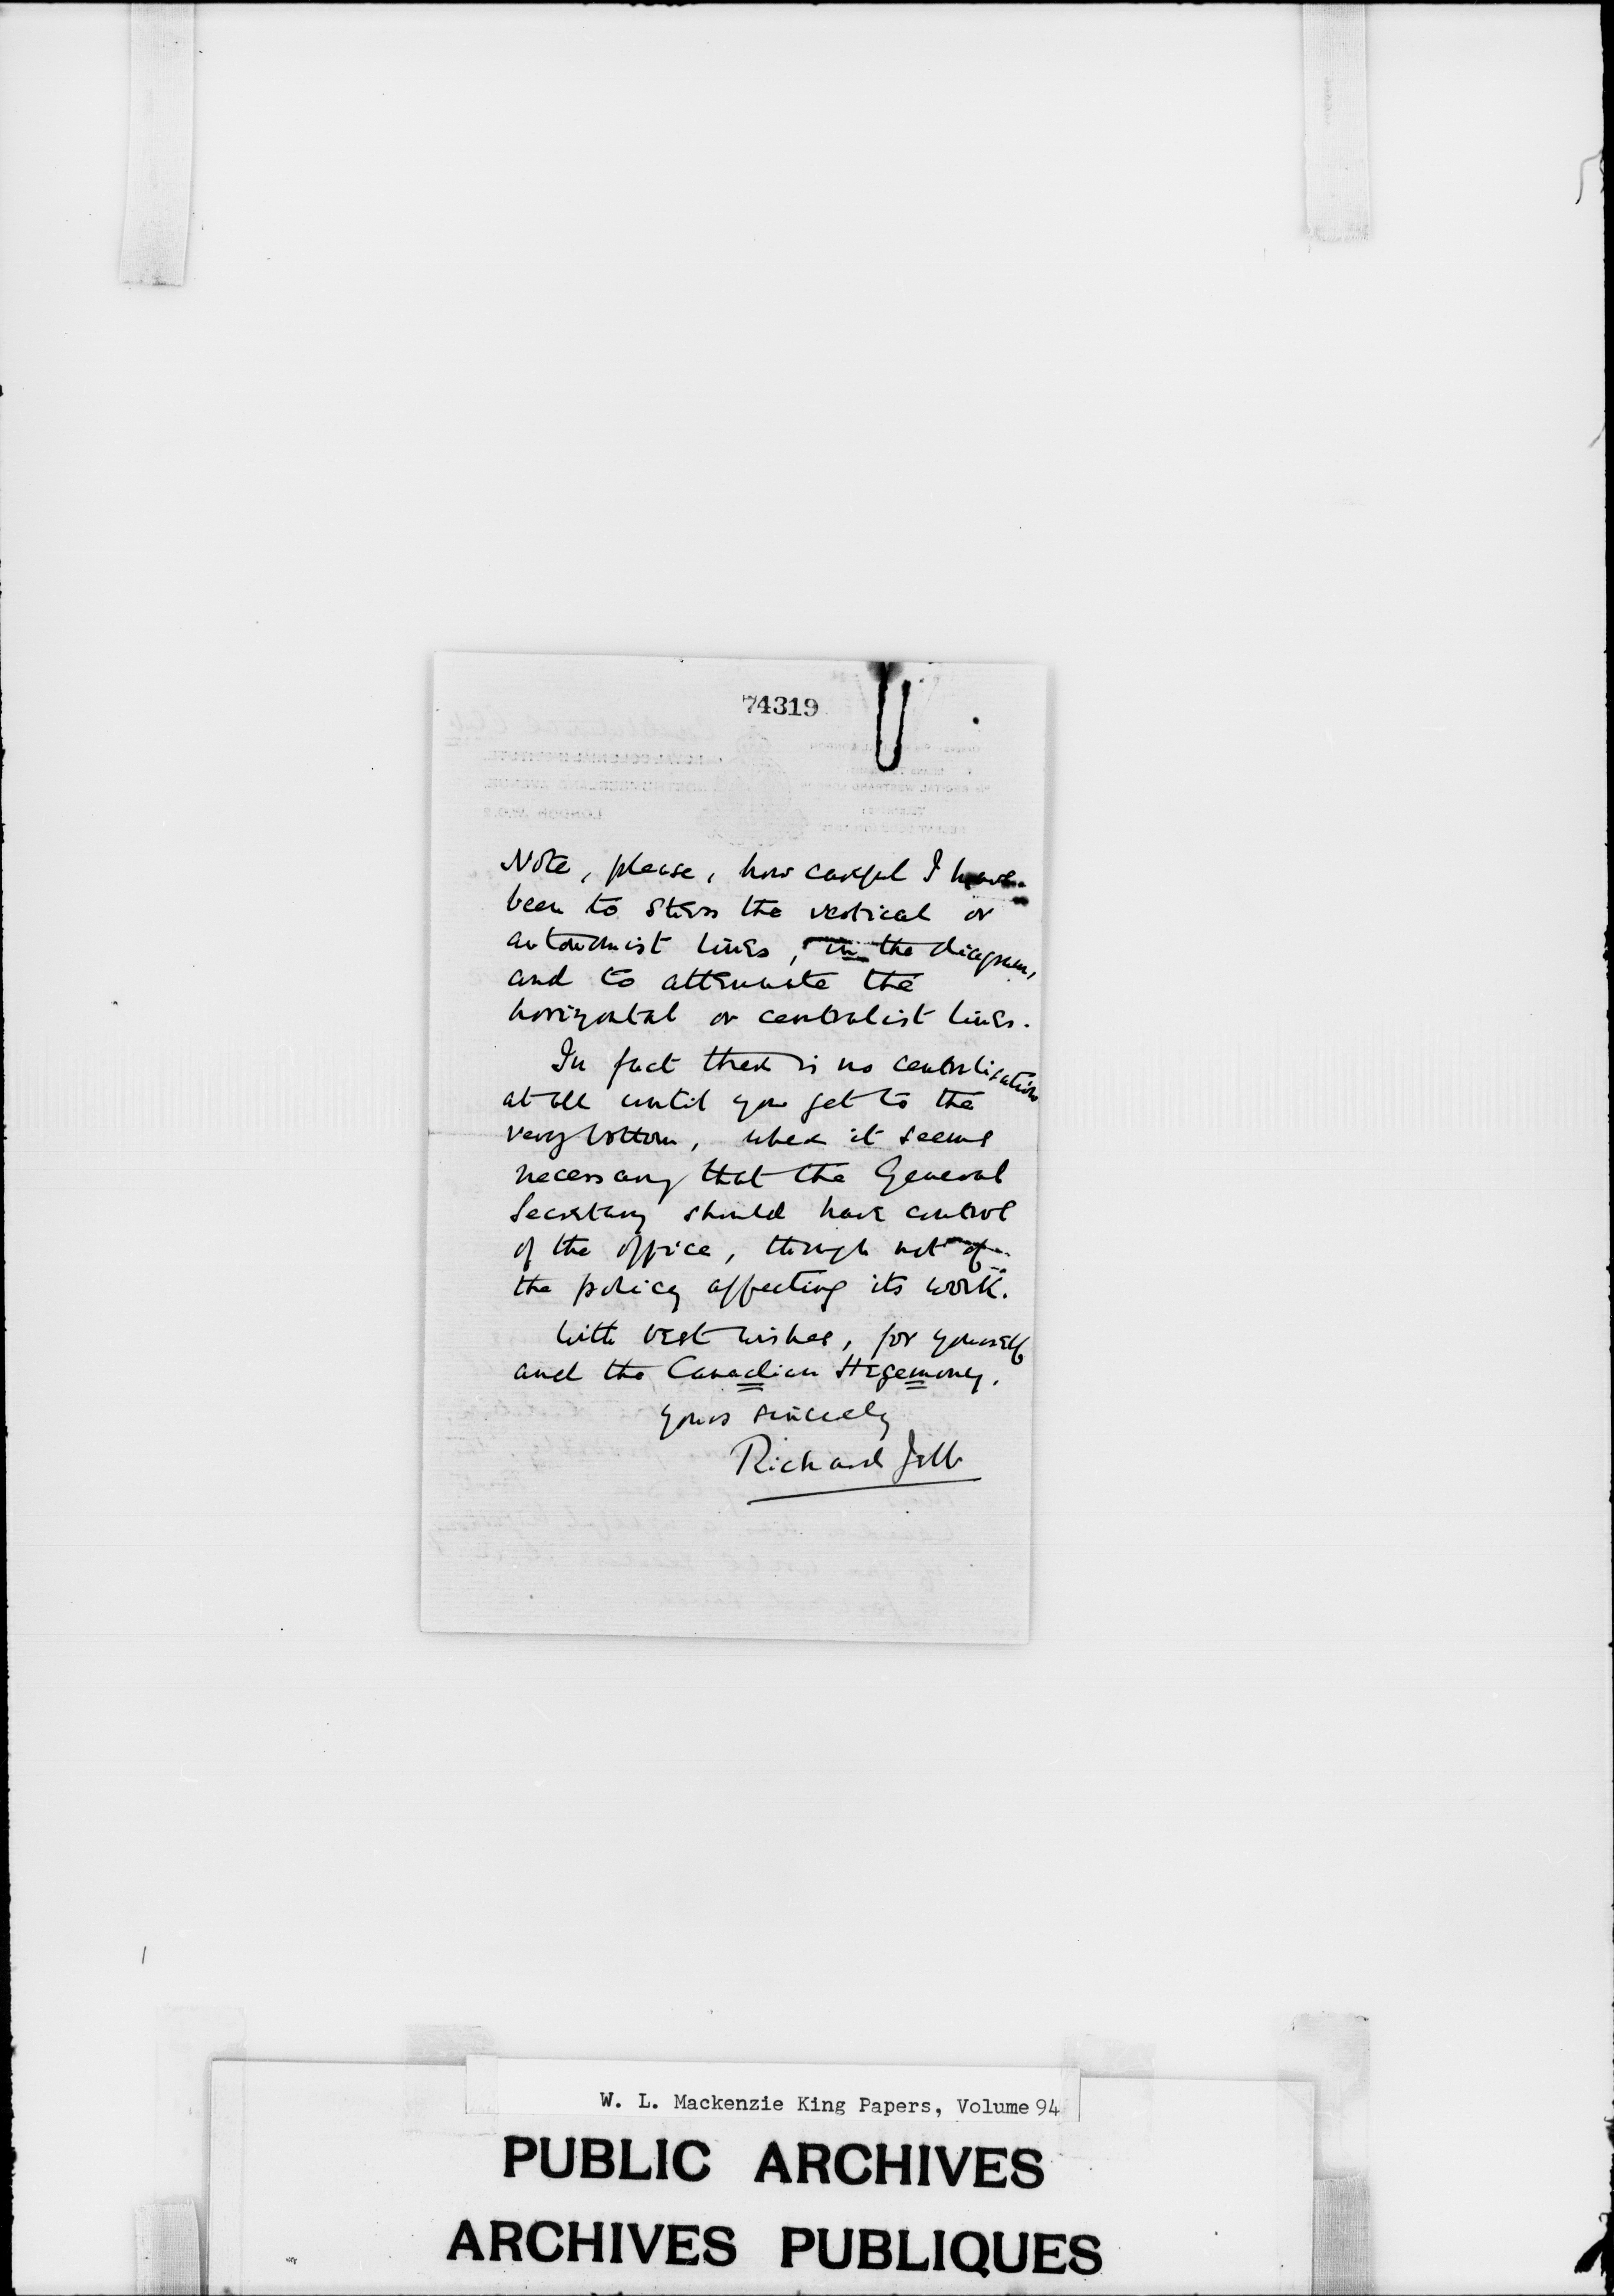 74319
Note, please, how careful I have
been to stress the vertical or
autonomist lines, in the diagram,
and to attenuate the
horizontal or centralist lines.
In fact there is no centralisation
at all until you get to the
very bottom, where it seems
necessary that the General
Secretary should have control
of the office, though not of
the policy affecting its work.
With best wishes, for yourself
and the Canadian Hegemony,
Yours sincerely
Richard Jebb
W. L. Mackenzie King Papers, Volume 94
PUBLIC ARCHIVES
ARCHIVES PUBLIQUES